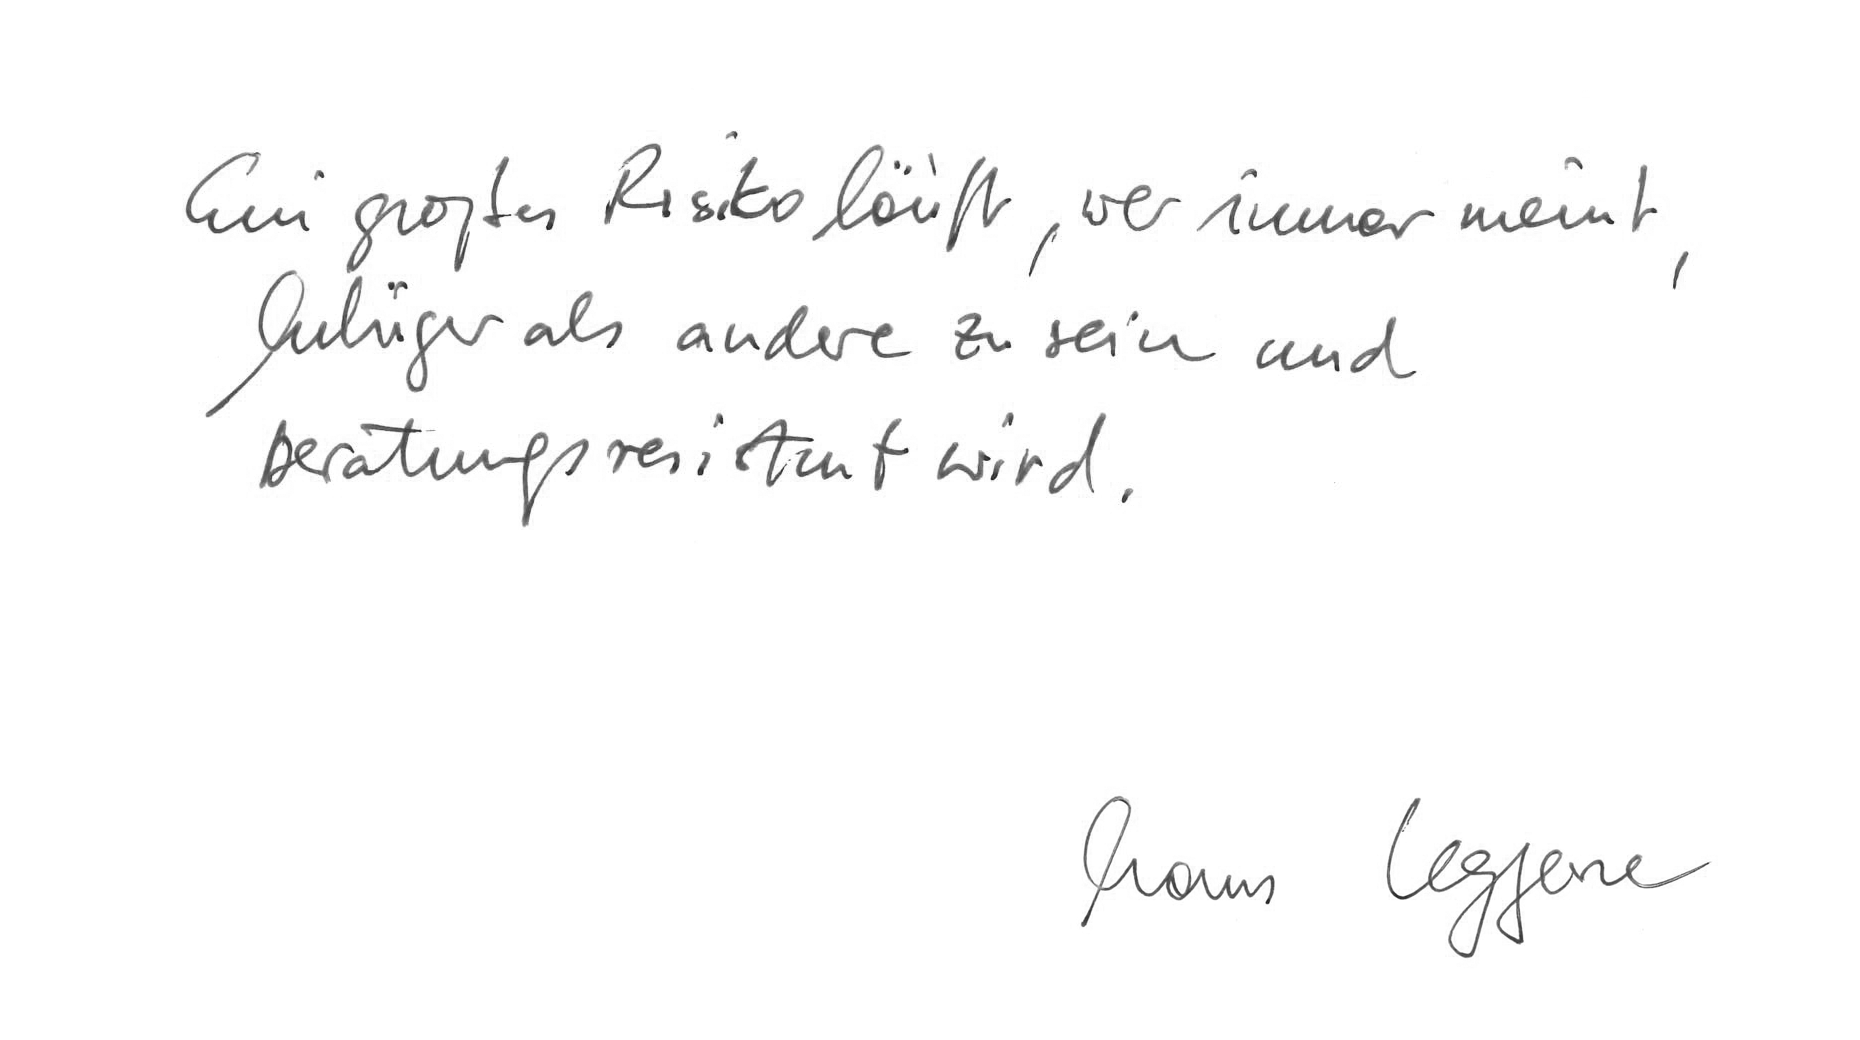 Ein großes Risiko läuft, wer immer meint,
klüger als andere zu sein und
beratungsresistent wird.
Claus Leggewie